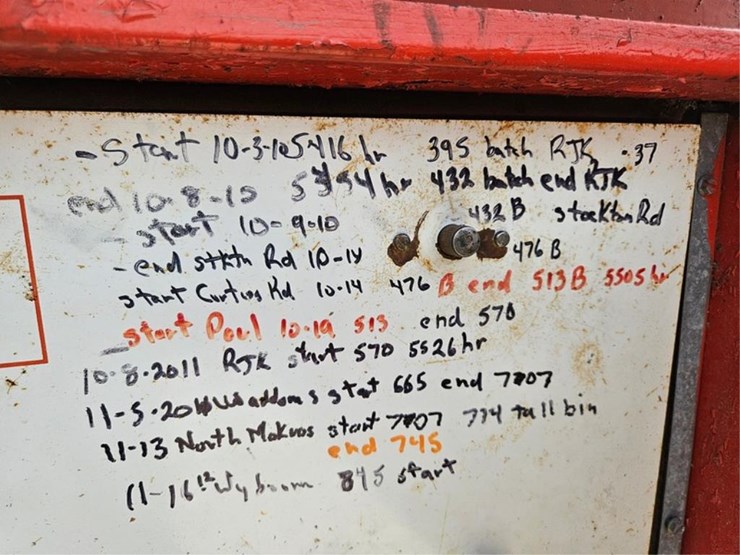 -Start 10-3-10 5416 hr 395 batch RJK .37
end 10-8-10 5454 hr 432 batch end RJK
- start 10-9-10 432 B stockton Rd
- end stktn Rd 10-14 476 B
start Curtus Rd 10-14 476 B end 513 B 5505 hr
- start Poul 10-19 513 end 570
10-8-2011 RJK start 570 5526 hr
11-5-20 start 665 end 7707
11-13 North start 7707 774 tall bin
end 745
11-16 12 845 start